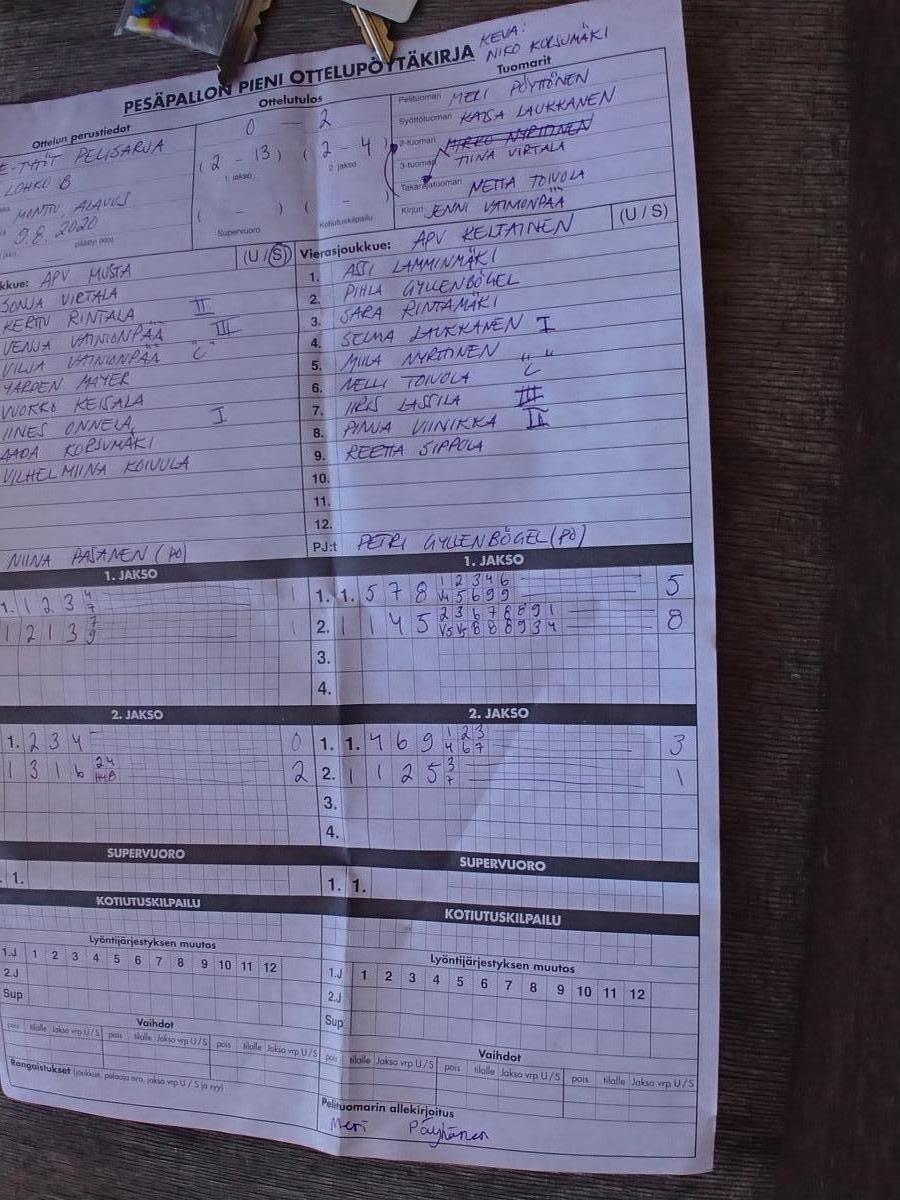 KEVA:
NIKO KORSUMÄKI
PESÄPALLON PIENI OTTELUPÖYTÄKIRJA
Ottelun perustiedot
E-TYTÖT PELISARJA
LOHKO B
MONTTU, ALAVUS
9.8. 2020
päättyi (klo)
Ottelutulos
0 - 2
(2 - 13) (2 - 4)
1. jakso 2. jakso
( - ) ( - )
Supervuoro Kotiutuskilpailu
Tuomarit
Pelituomari MERI PÖYHÖNEN
Syöttötuomari KAISA LAUKKANEN
2-tuomari
3-tuomari TIINA VIRTALA
Takarajatuomari NETTA TOIVOLA
Kirjuri JENNI VAINIONPÄÄ
kkue: APV MUSTA (U / S)
SONJA VIRTALA
KERTU RINTALA II
VENJA VAINIONPÄÄ III
VILJA VAINIONPÄÄ "C"
YARDEN MAYER
VUOKKO KEISALA
IINES ONNELA I
AADA KORSUMÄKI
VILHELMIINA KOIVULA
NIINA PAJANEN (PO)
Vierasjoukkue: APV KELTAINEN (U / S)
1. ASSI LAMMINMÄKI
2. PIHLA GYLLENBÖGEL
3. SARA RINTAMÄKI
4. SELMA LAUKKANEN I
5. MIILA NYRTTINEN
6. NELLI TOIVOLA "C"
7. IIRIS LASSILA III
8. PINJA VIINIKKA II
9. REETTA SIPPOLA
10.
11.
12.
PJ:t PETRI GYLLENBÖGEL (PO)
1. JAKSO
1. 1 2 3 4 1
7
1 2 1 3 7 1
9
1. JAKSO
1. 1. 5 7 8 1 2 3 4 6 5
V4 5 6 9 9
2. 1 1 4 5 2 3 6 7 8 8 9 1 8
V5 V5 8 8 8 9 3 4
3.
4.
2. JAKSO
1. 2 3 4 0
1 3 1 6 2 4 2
2. JAKSO
1. 1. 4 6 9 1 2 3 3
4 6 7
2. 1 1 2 5 3 1
7
3.
4.
SUPERVUORO
1.
SUPERVUORO
1. 1.
KOTIUTUSKILPAILU
KOTIUTUSKILPAILU
Lyöntijärjestyksen muutos
1.J 1 2 3 4 5 6 7 8 9 10 11 12
2.J
Sup
Lyöntijärjestyksen muutos
1.J 1 2 3 4 5 6 7 8 9 10 11 12
2.J
Sup
Vaihdot
pois tilalle Jakso vrp U / S pois tilalle Jakso vrp U / S pois tilalle Jakso vrp U / S
Vaihdot
pois tilalle Jakso vrp U / S pois tilalle Jakso vrp U / S pois tilalle Jakso vrp U / S
Rangaistukset (joukkue, pelaaja nro, jakso vrp U / S ja syy)
Pelituomarin allekirjoitus
Meri Pöyhönen